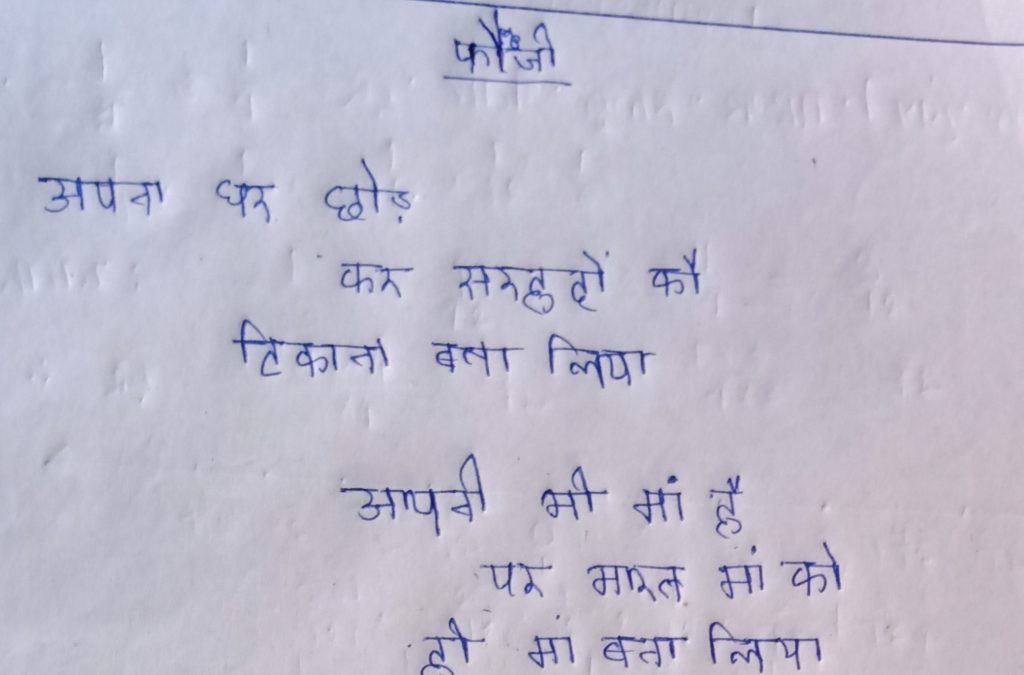 फौजी
अपना घर छोड़
कर सरहदों कौ
ठिकाना बना लिया
अपनी भी मां है
पर भारत मां को
ही मां बना लिया